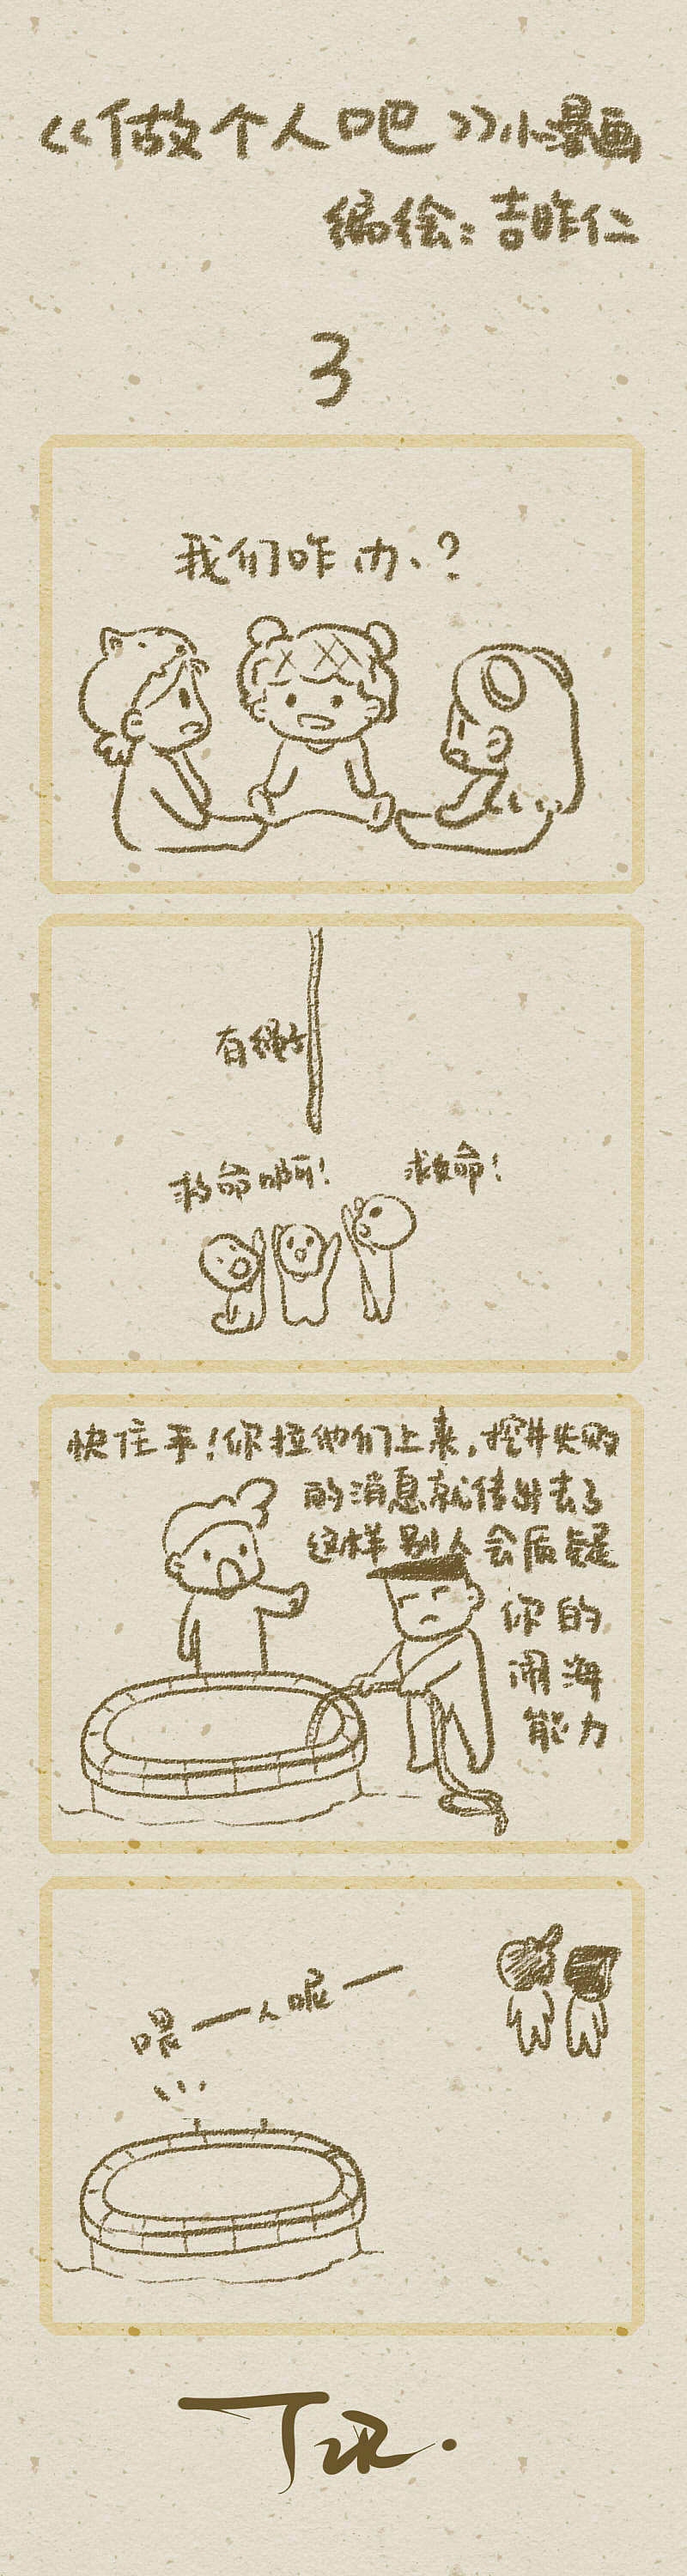 《做个人吧》小漫画
编绘：吉昨仁
3
我们咋办？
有绳子
救命啊！
救命！
快住手！你拉他们上来，挖井失败
的消息就传出去了
这样别人会质疑
你的
闹海
能力
喂——人呢——